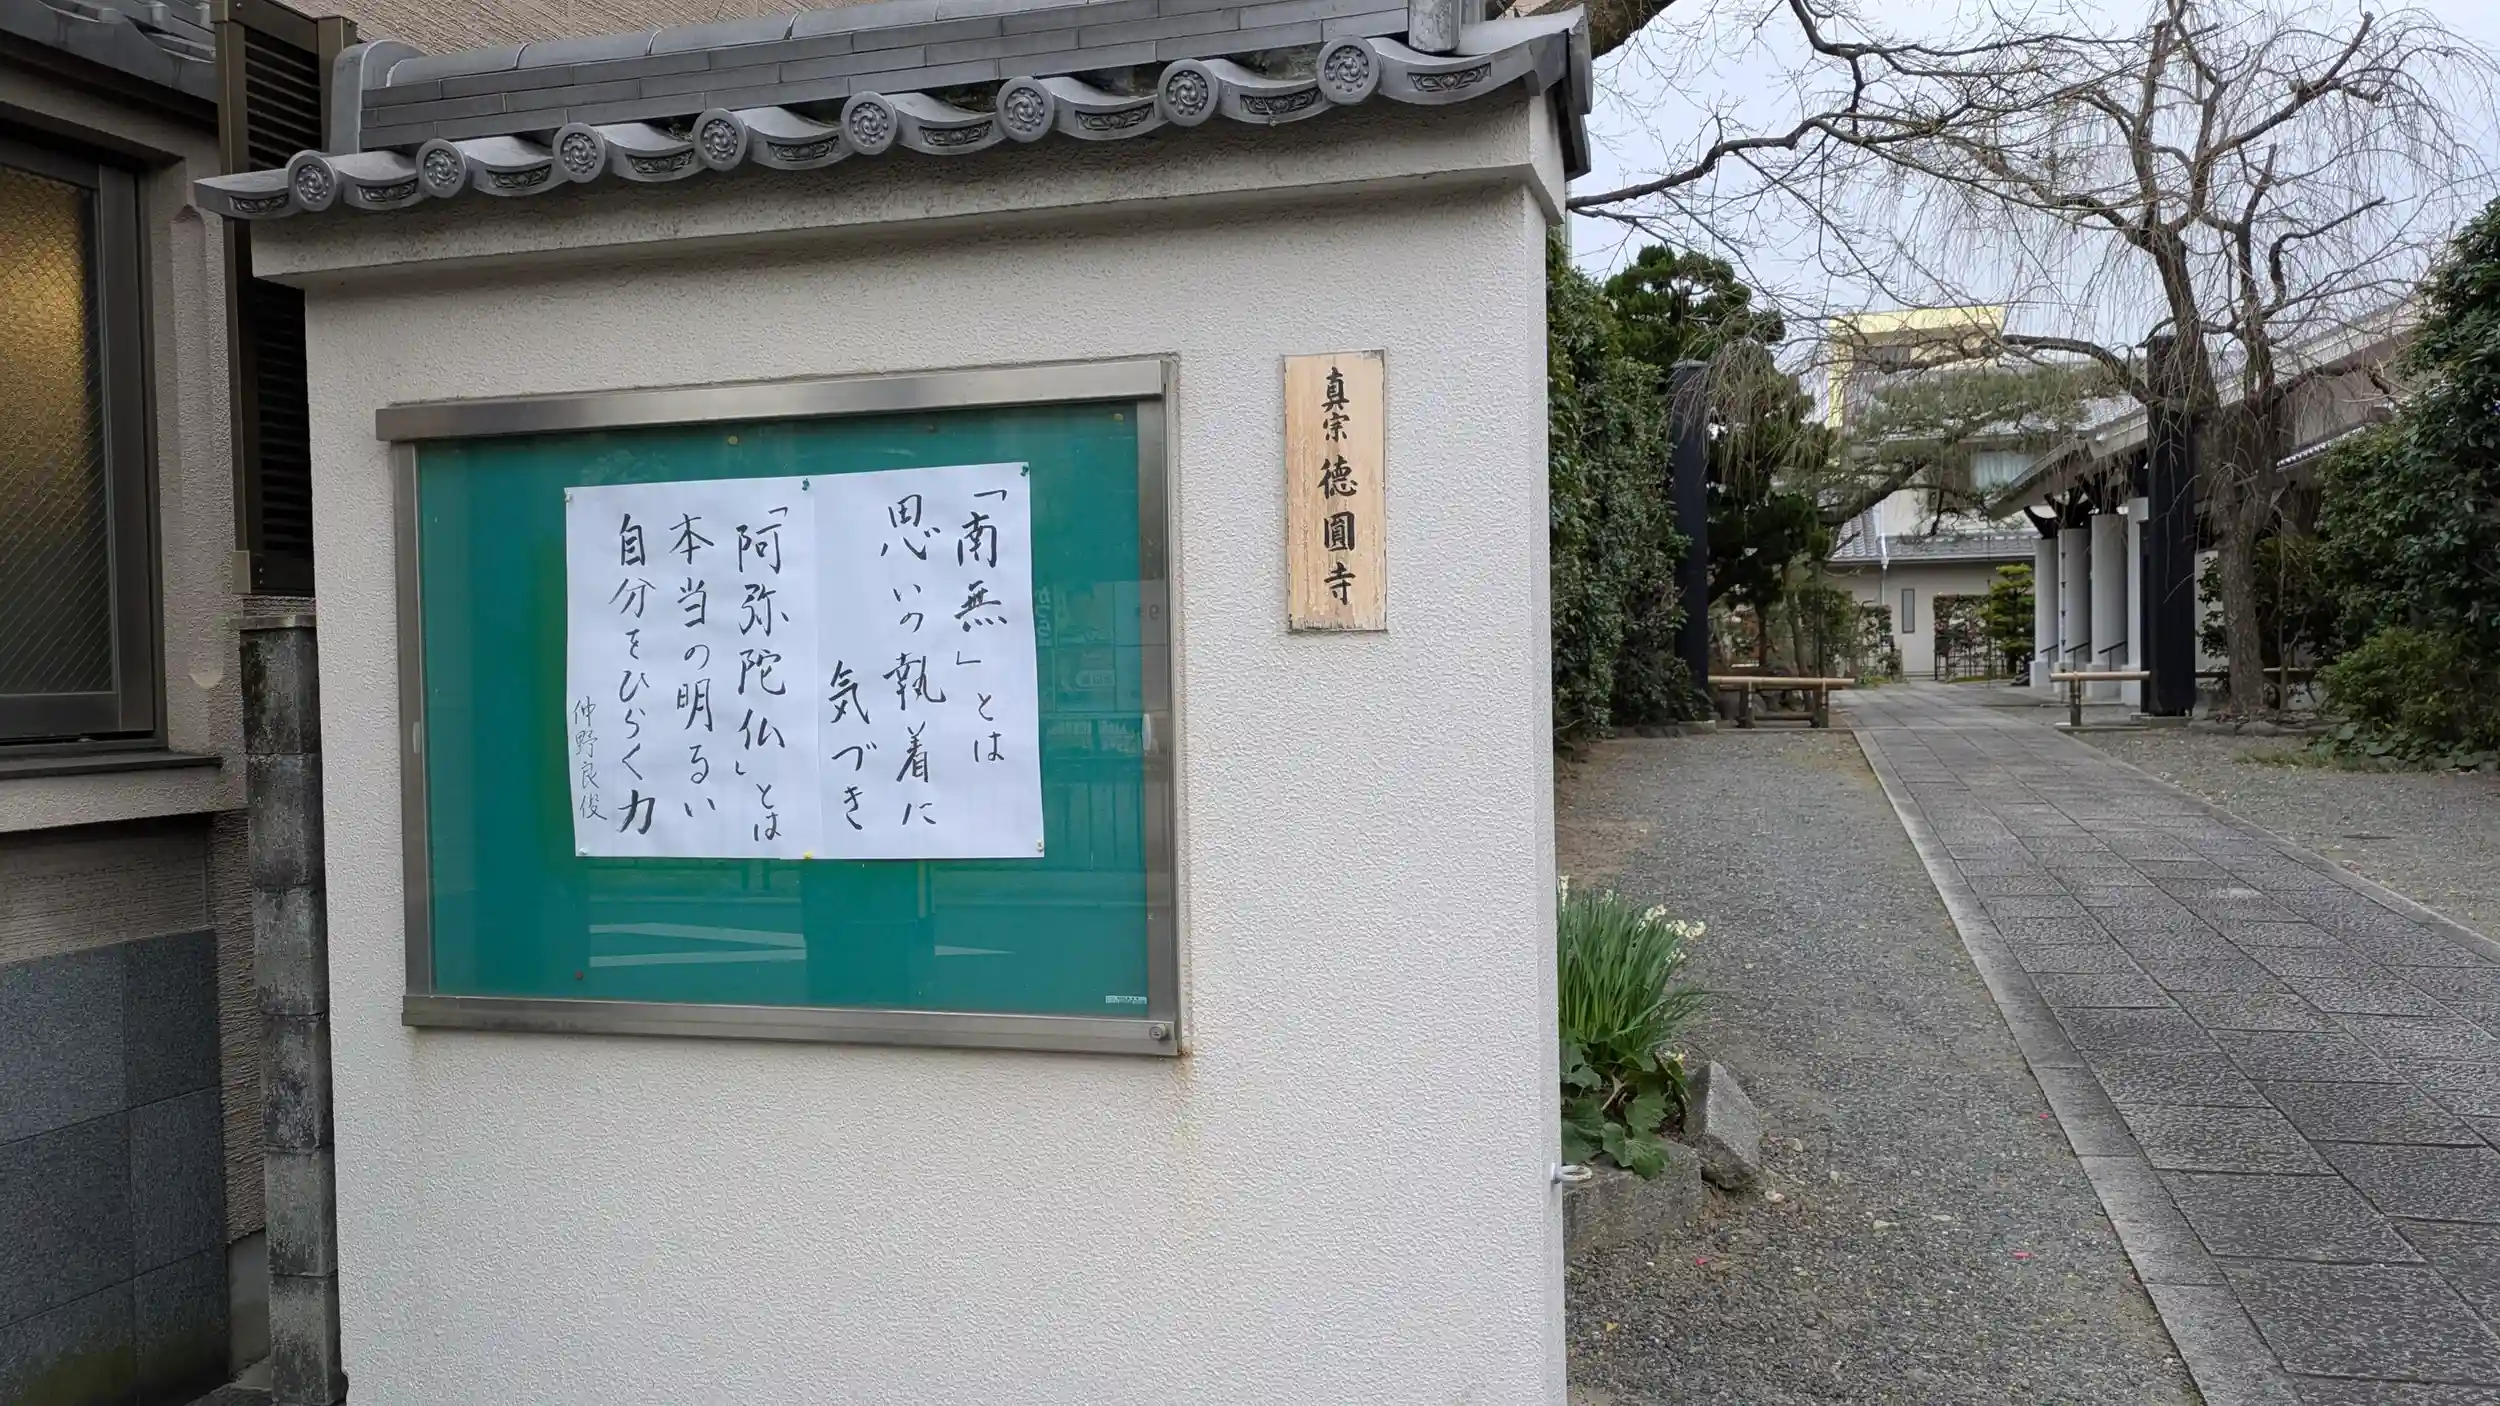 「南無」とは
思いの執着に
気づき
「阿弥陀仏」とは
本当の明るい
自分をひらく力
仲野良俊
真宗 德圓寺